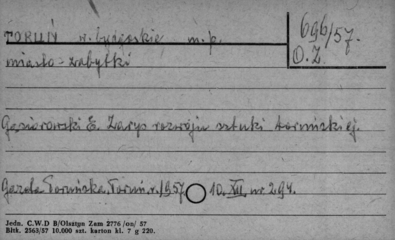 TORUŃ w. bydgoskie, m.p.
696/57.
O.Z.
miasto - zabytki
Gąsiorowski E. Zarys rozwoju sztuki toruńskiej.
Gazeta Toruńska, Toruń, r. 1957 10. XII. nr 294.
Jedn. C.W.D B/Olsztyn Zam 2776 /on/ 57
Bltk. 2563/57 10.000 szt. karton kl. 7 g 220.